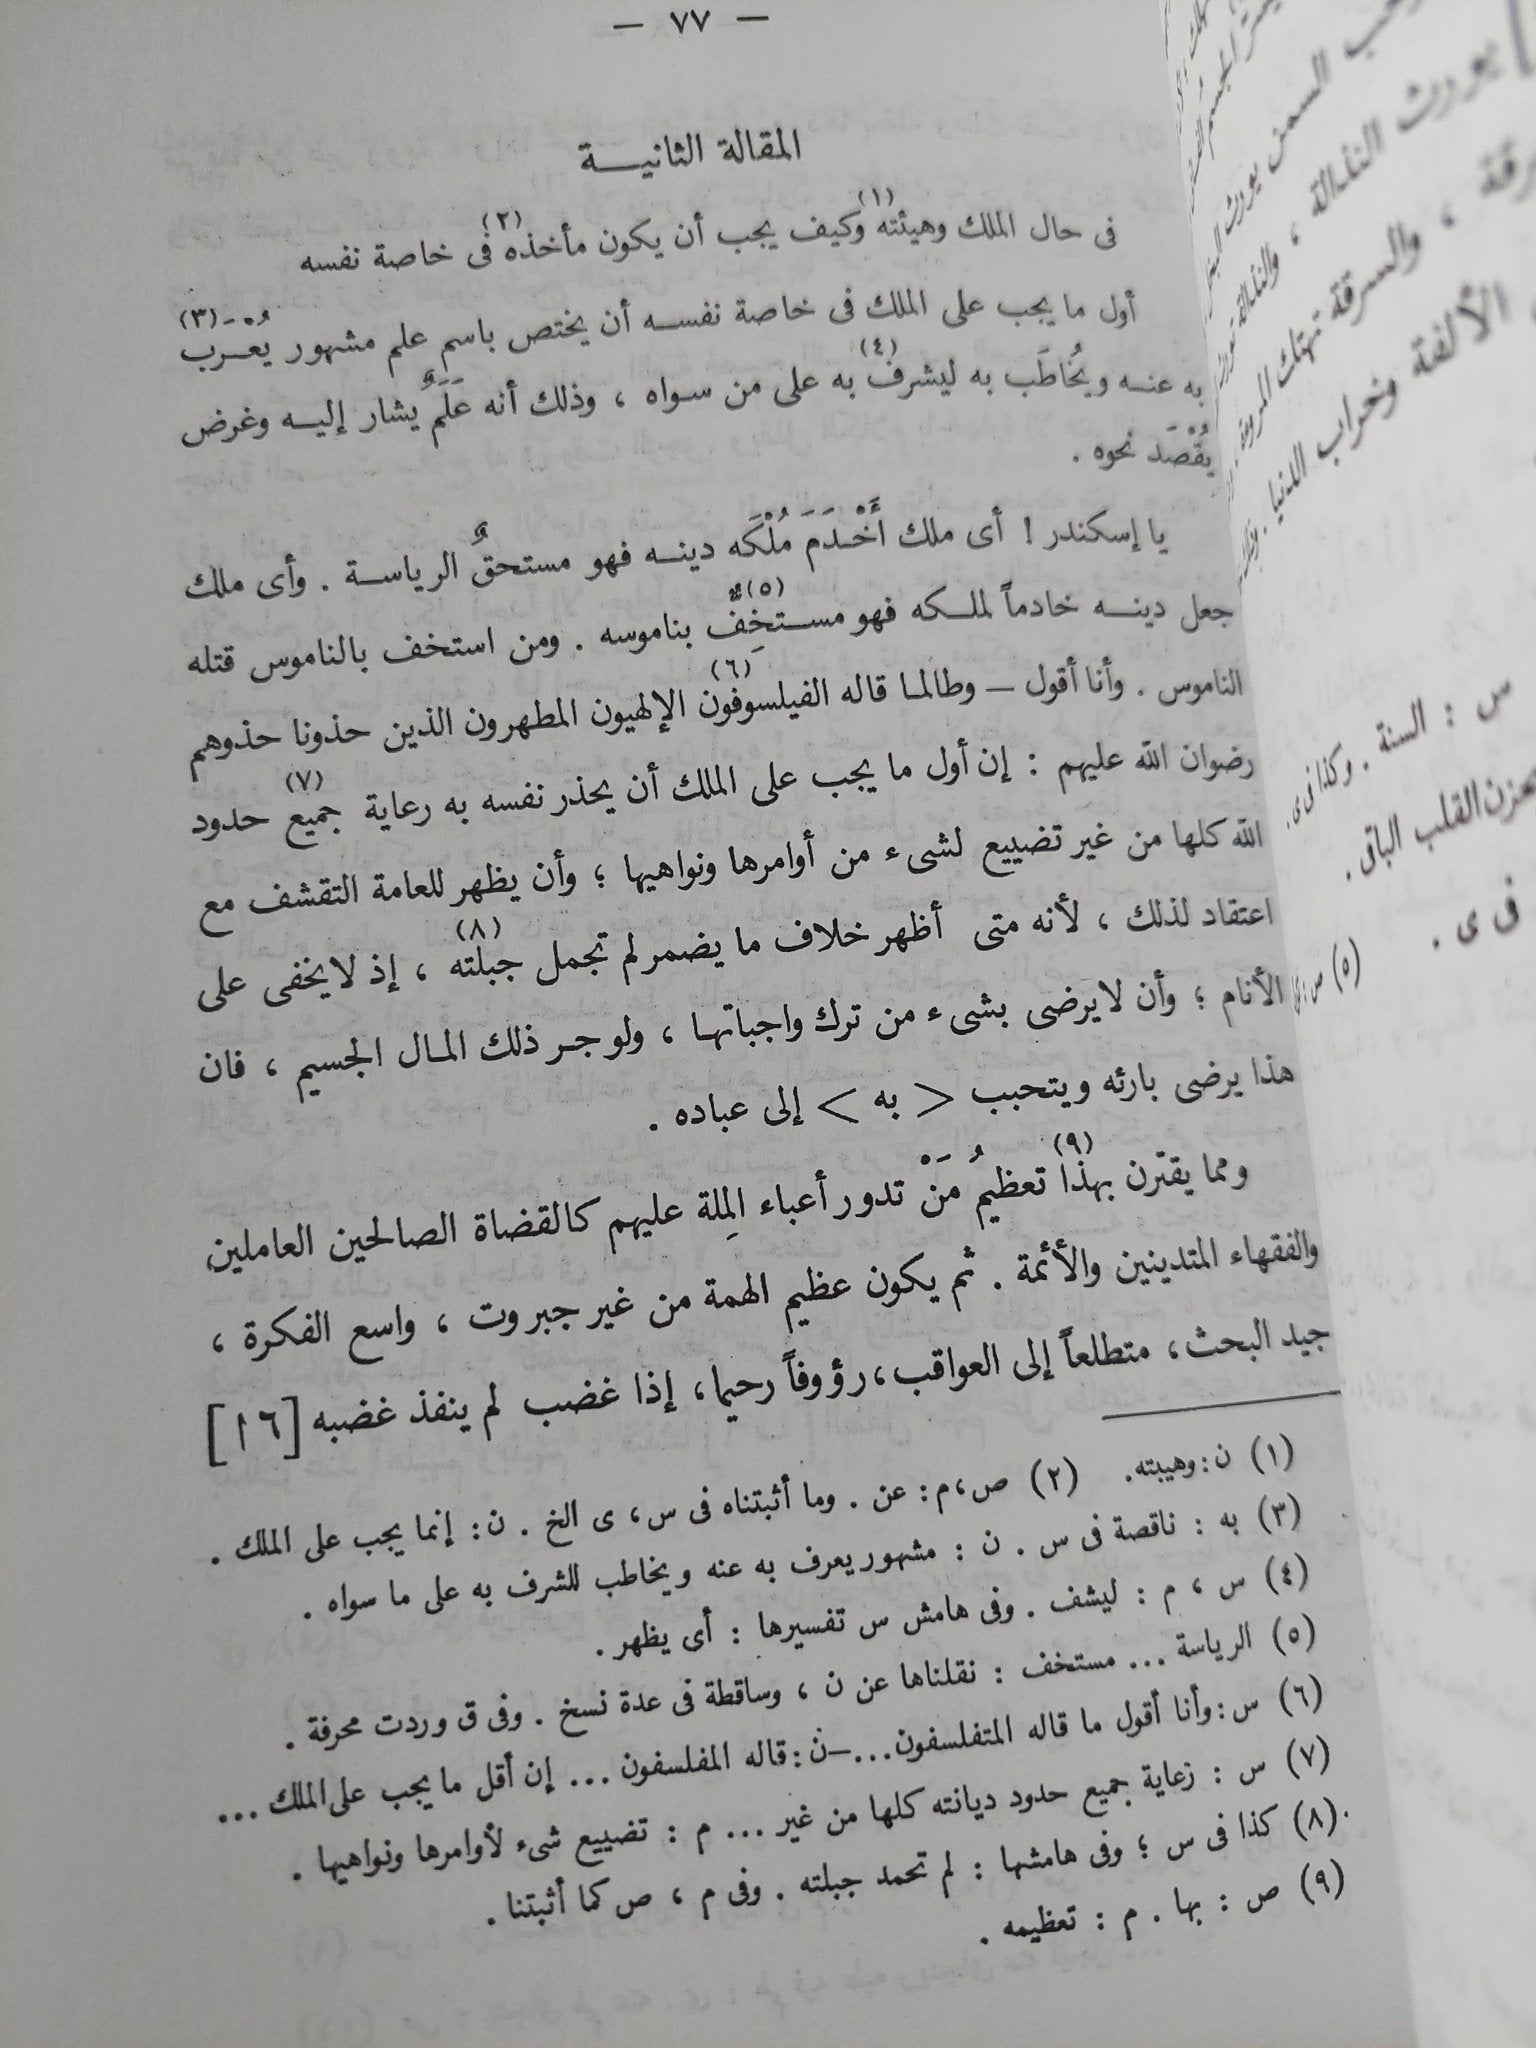 — ٧٧ —
المقالة الثانيـــة
فى حال الملك وهيئته(١) وكيف يجب أن يكون مأخذه(٢) فى خاصة نفسه
أول ما يجب على الملك فى خاصة نفســه أن يختص باسم علم مشهور يُعْــرب(٣)
به عنــه ويُخاطَب به ليشرف(٤) به على من سواه ، وذلك أنه عَلَمٌ يشار إليــه وغرض
يُقْصَد نحوه .
يا إسكندر ! أى ملك أَخْدَمَ مُلْكَه دينــه فهو مستحقٌ الرياســة . وأى ملك
جعل دينــه خادماً لملــكه فهو مســتخِفٌّ(٥) بناموسه . ومن استخف بالناموس قتله
الناموس . وأنا أقول — وطالما قاله الفيلسوفون(٦) الإلهيون المطهرون الذين حذونا حذوهم
رضوان الله عليهم : إن أول ما يجب على الملك أن يحذر نفسه به رعاية جميع(٧) حدود
الله كلها من غير تضييع لشىء من أوامرها ونواهيها ؛ وأن يظهر للعامة التقشف مع
اعتقاد لذلك ، لأنه متى أظهر خلاف ما يضمر لم تجمل جبلته(٨) ، إذ لا يخفى على
الأنام ؛ وأن لا يرضى بشىء من ترك واجباتها ، ولو جر ذلك المال الجسيم ، فان
هذا يرضى بارئه ويتحبب < به > إلى عباده .
ومما يقترن بهذا(٩) تعظيمُ مَنْ تدور أعباء المِلة عليهم كالقضاة الصالحين العاملين
والفقهاء المتدينين والأئمة . ثم يكون عظيم الهمة من غير جبروت ، واسع الفكرة ،
جيد البحث ، متطلعاً إلى العواقب ، رؤوفاً رحيما ، إذا غضب لم ينفذ غضبه [١٦ ا]
(١) ن : وهيبته . (٢) ص ، م : عن . وما أثبتناه فى س ، ى الخ . ن : إنما يجب على الملك .
(٣) به : ناقصة فى س . ن : مشهور يعرف به عنه ويخاطب للشرف به على ما سواه .
(٤) س ، م : ليشف . وفى هامش س تفسيرها : أى يظهر .
(٥) الرياسة ... مستخف : نقلناها عن ن ، وساقطة فى عدة نسخ . وفى ق وردت محرفة .
(٦) س : وأنا أقول ما قاله المتفلسفون ... — ن : قاله المفلسفون ... إن أقل ما يجب على الملك ...
(٧) س : زعاية جميع حدود ديانته كلها من غير ... م : تضييع شىء لأوامرها ونواهيها .
(٨) كذا فى س ؛ وفى هامشها : لم تحمد جبلته . وفى م ، ص كما أثبتنا .
(٩) ص : بها . م : تعظيمه .
س : السنة . وكذا فى ى .
القلب الباقى .
فى ى .